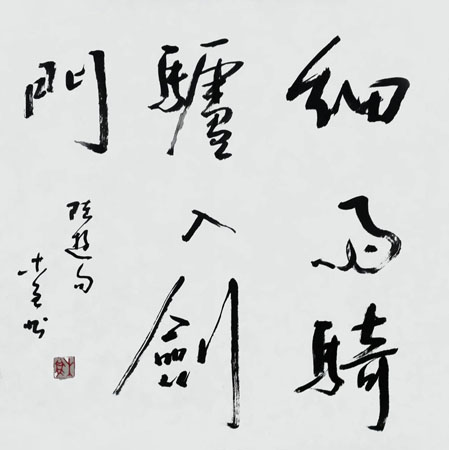 細雨騎
驢入劍
門
陸遊句